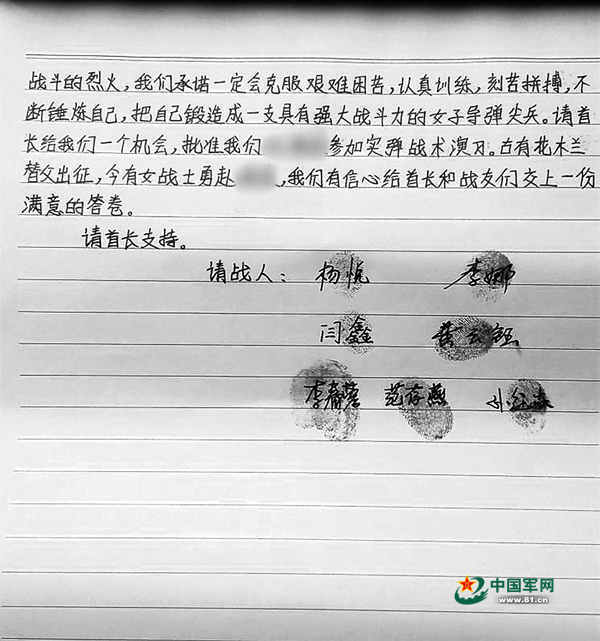 战斗的烈火，我们承诺一定会克服艰难困苦，认真训练，刻苦拼搏，不
断锤炼自己，把自己锻造成一支具有强大战斗力的女子导弹尖兵。请首
长给我们一个机会，批准我们参加实弹战术演习。古有花木兰
替父出征，今有女战士勇赴，我们有信心给首长和战友们交上一份
满意的答卷。
请首长支持。
请战人：杨悦 李娜
闫鑫 黄云
李春莹 范存燕
中国军网
www.81.cn